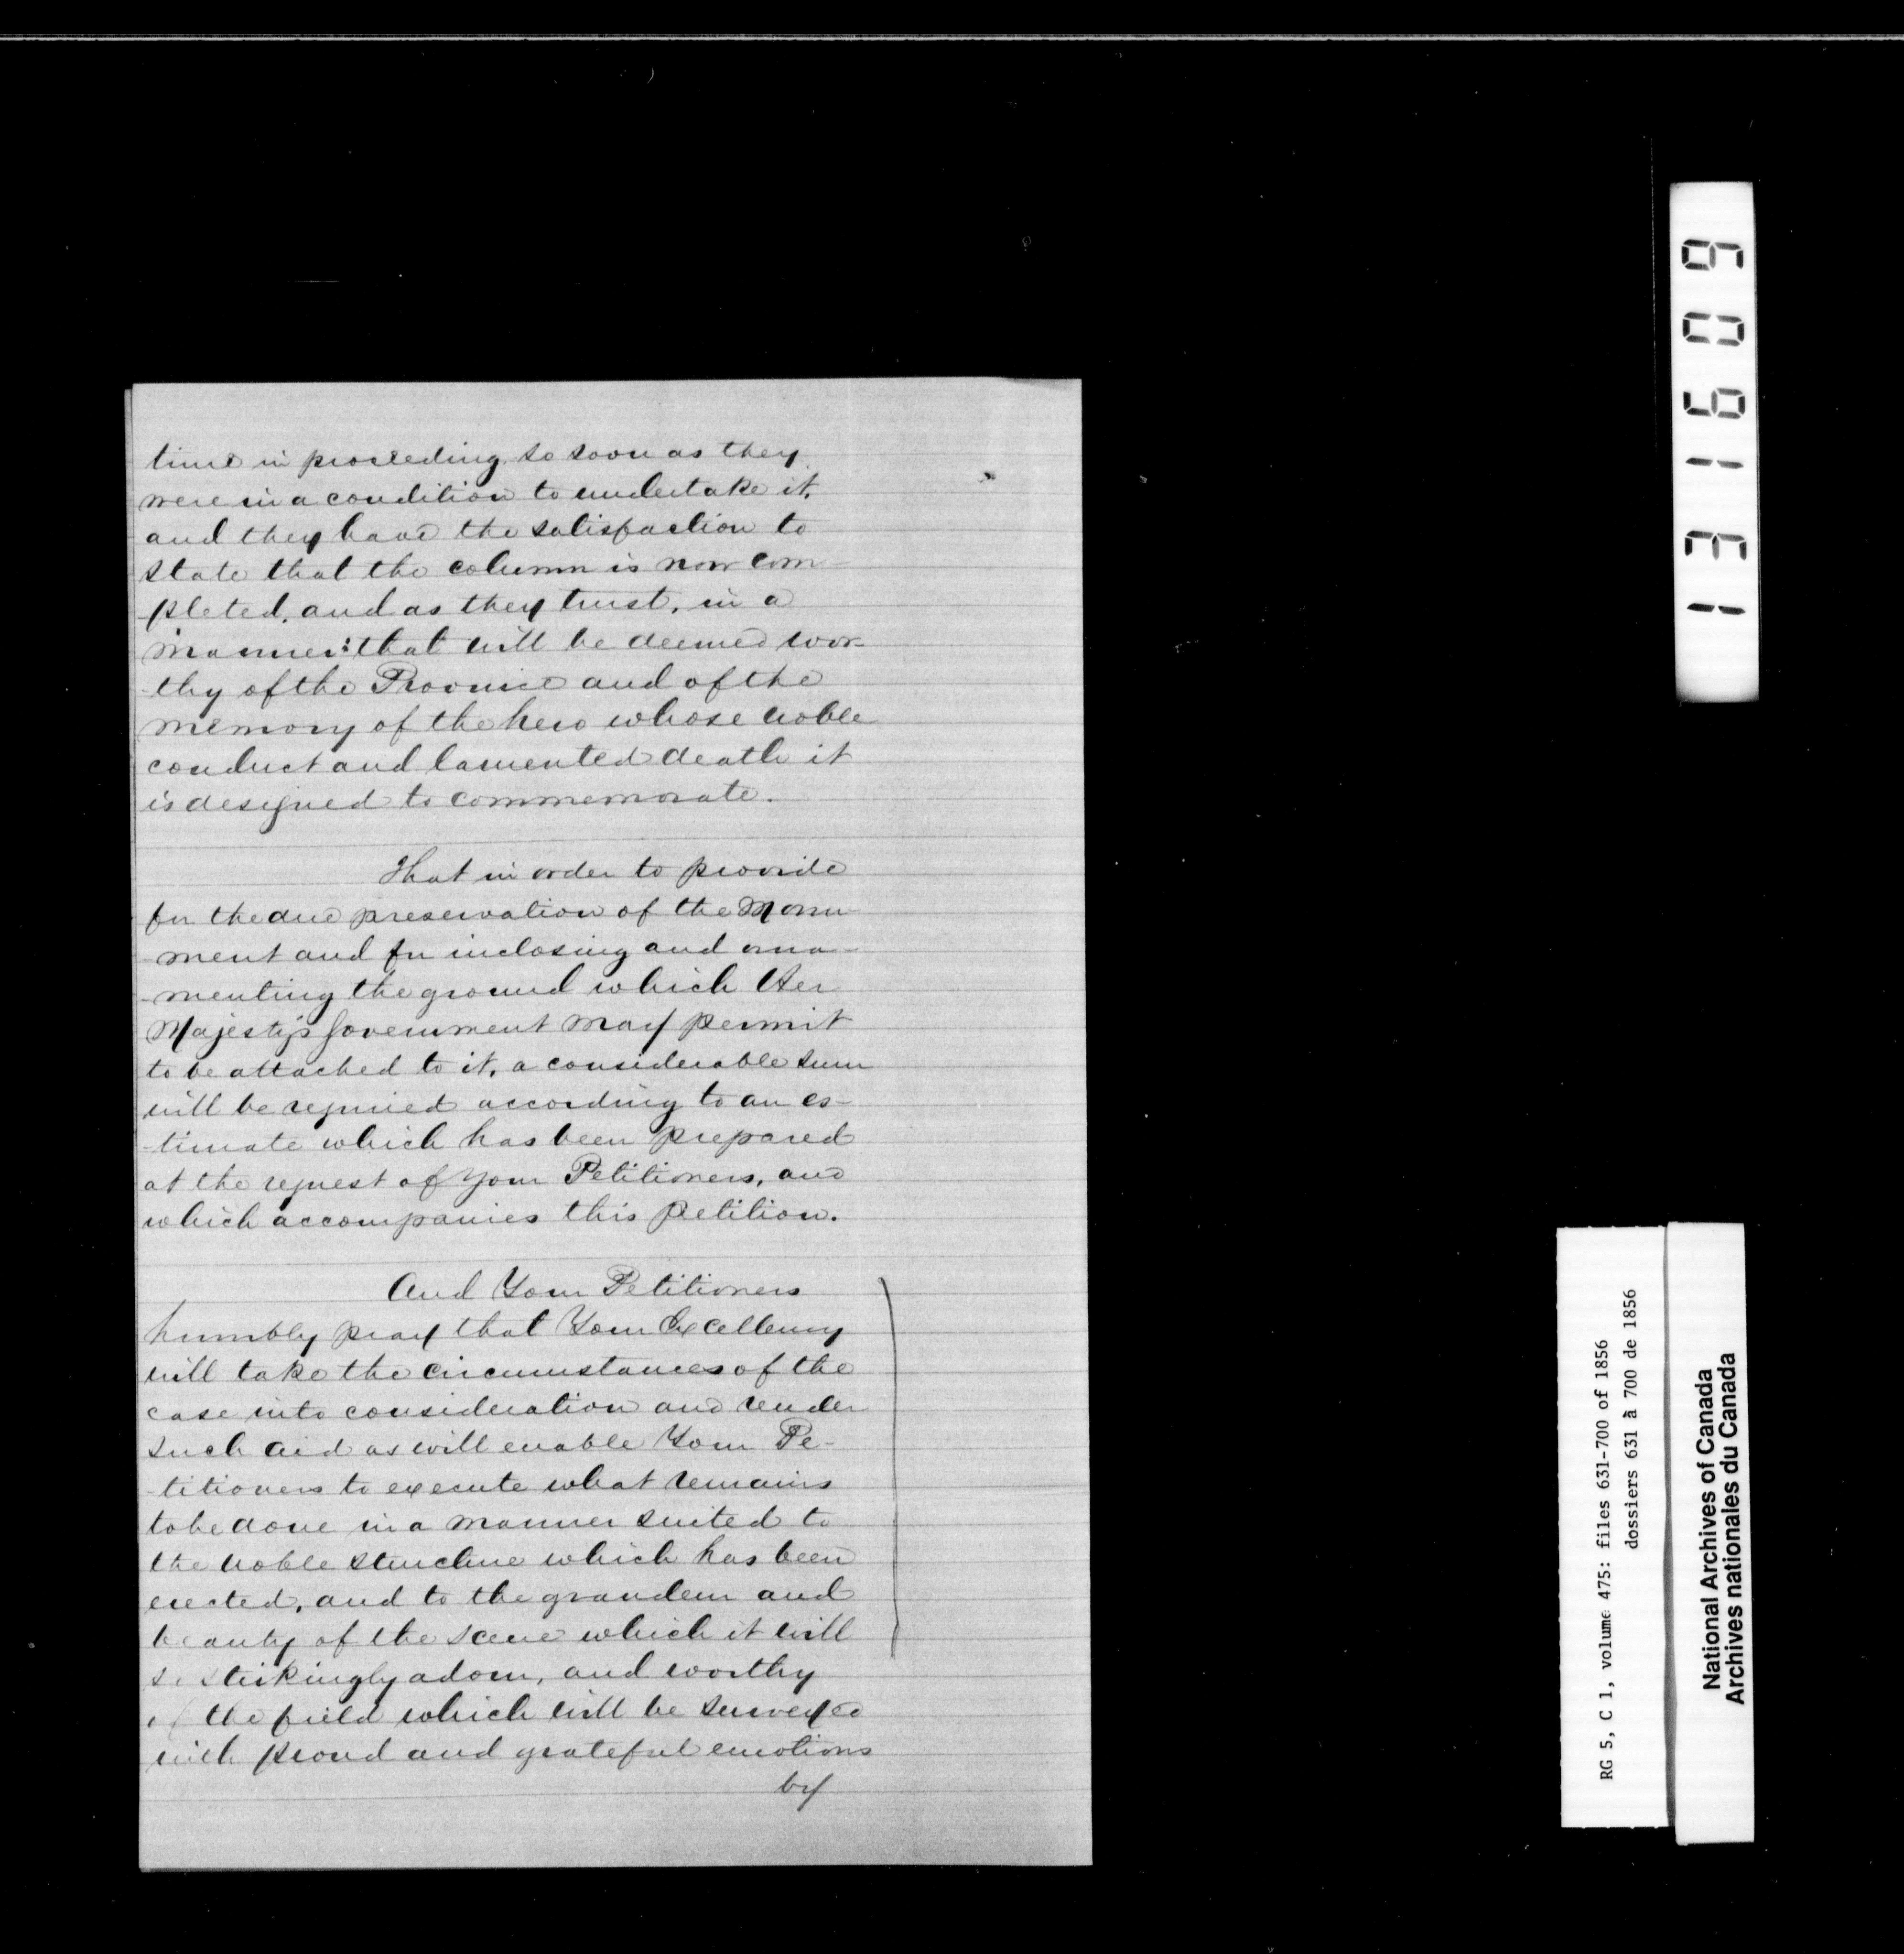 time in proceeding, so soon as they
were in a condition to undertake it,
and they have the satisfaction to
state that the column is now com-
pleted, and as they trust, in a
manner that will be deemed wor-
-thy of the Province and of the
memory of the hero whose noble
conduct and lamented death it
is designed to commemorate.
That in order to provide
for the due preservation of the Monu-
-ment and for inclosing and orna-
-menting the ground which Her
Majesty's Government may permit
to be attached to it, a considerable sum
will be required according to an es-
-timate which has been prepared
at the request of Your Petitioners, and
which accompanies this Petition.
And Your Petitioners
humbly pray that Your Excellency
will take the circumstances of the
case into consideration and render
such aid as will enable Your Pe-
-titioners to execute what remains
to be done in a manner suited to
the noble structure which has been
erected, and to the grandeur and
beauty of the scene which it will
so strikingly adorn, and worthy
of the field which will be surveyed
with proud and grateful emotions
by
131609
RG 5, C 1, volume 475: files 631-700 of 1856
dossiers 631 à 700 de 1856
National Archives of Canada
Archives nationales du Canada